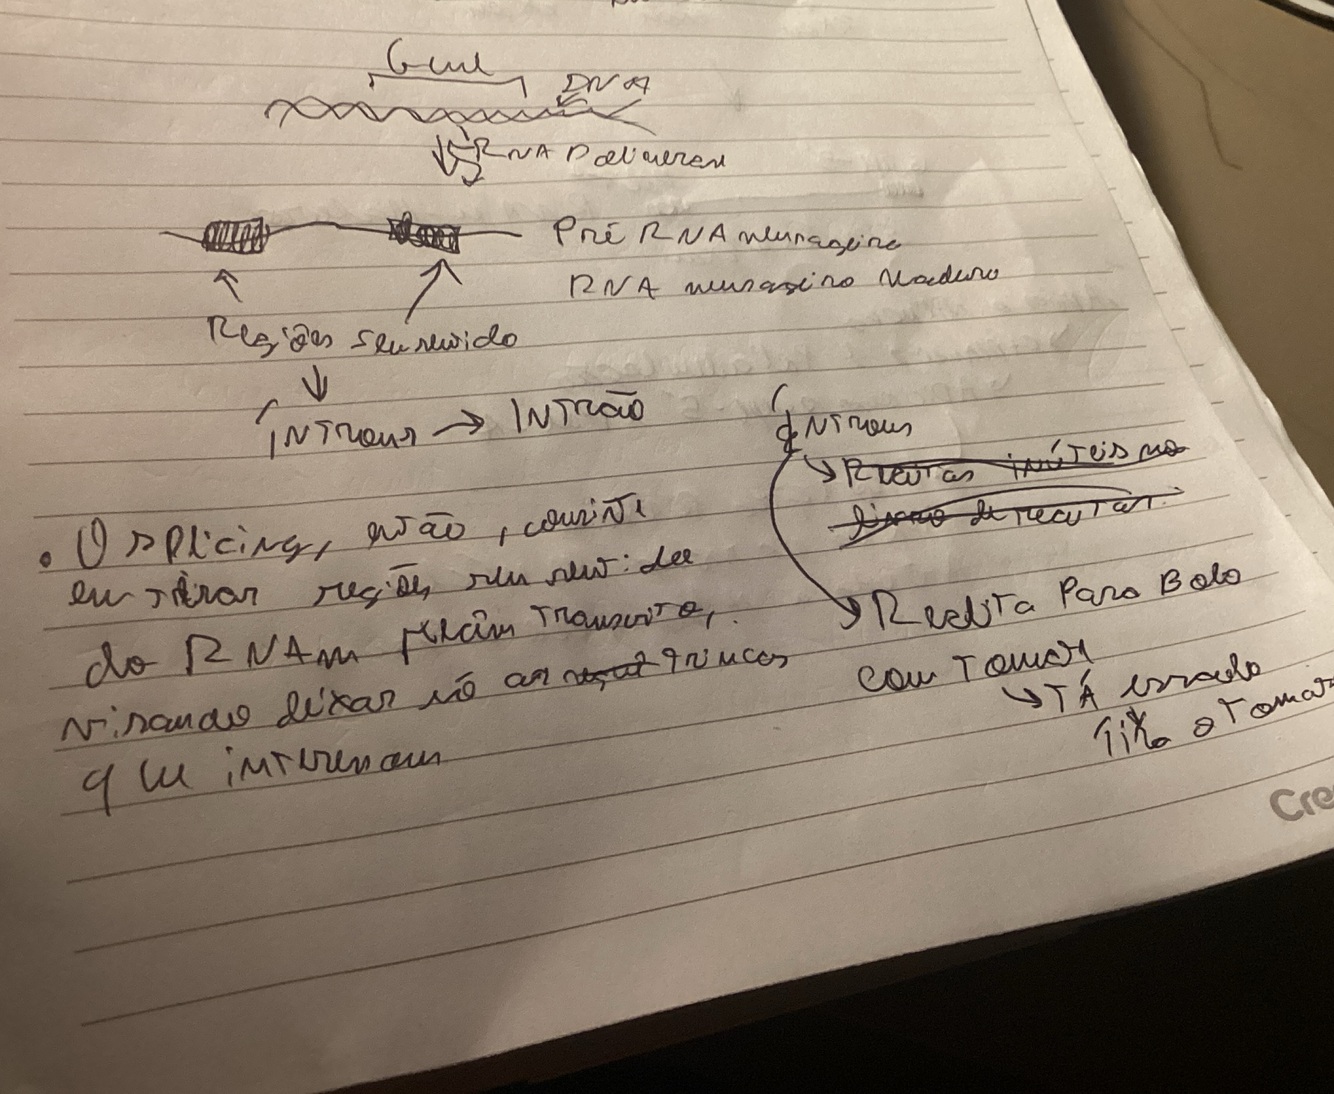 Gene
DNA
RNA Polimerase
Pré RNA mensageiro
RNA mensageiro Maduro
Regiões sem sentido
íNTRons → INTRÃO
íNTRons
→ Receitas inúTeis no
livro de receitas.
• O splicing, então, consiste
em tirar regiões sem sentidos
do RNAm recém transcrito,
visando deixar só as trincas
que interessam
→ Receita Para Bolo
com Tomate
→ TÁ errado
Tira o Tomate
Cre